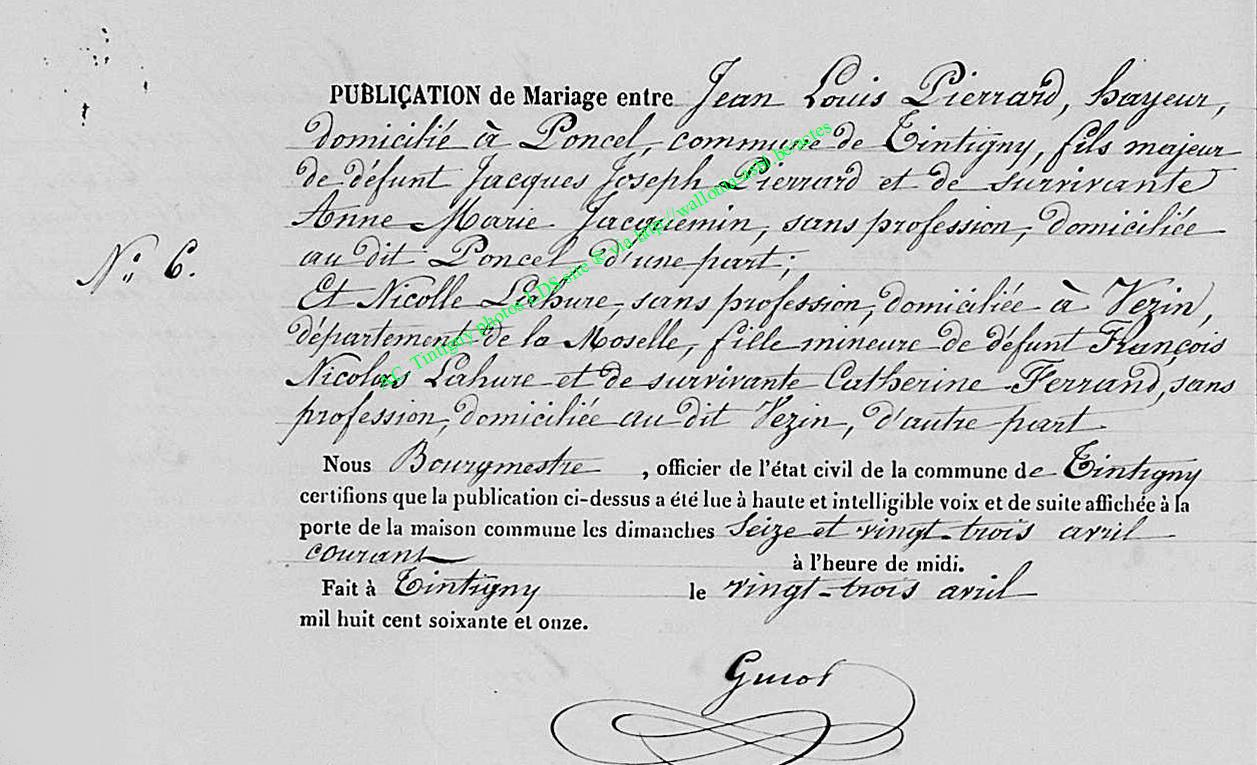 PUBLICATION de Mariage entre Jean Louis Pierrard, hayeur,
domicilié à Poncel, commune de Tintigny, fils majeur
de défunt Jacques Joseph Pierrard et de survivante
Anne Marie Jacquemin, sans profession, domiciliée
au dit Poncel, d'une part;
N° 6.
Et Nicolle Lahure, sans profession, domiciliée à Vezin,
département de la Moselle, fille mineure de défunt François
Nicolas Lahure et de survivante Catherine Ferrand, sans
profession, domiciliée au dit Vezin, d'autre part
Nous Bourgmestre, officier de l'état civil de la commune de Tintigny
certifions que la publication ci-dessus a été lue à haute et intelligible voix et de suite affichée à la
porte de la maison commune les dimanches seize et vingt-trois avril
courant à l'heure de midi.
Fait à Tintigny le vingt-trois avril
mil huit cent soixante et onze.
Guiot
AC. Tintigny photos EDS site via http://wallonia-asbl.be-actes